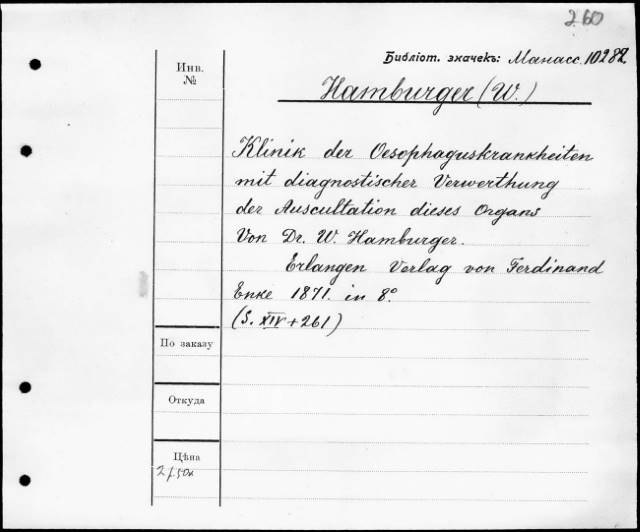 260
Библіот. значекъ: Манасс. 10282
Инв.
№
Hamburger (W.)
Klinik der Oesophaguskrankheiten
mit diagnostischer Verwerthung
der Auscultation dieses Organs
Von Dr. W. Hamburger.
Erlangen Verlag von Ferdinand
Enke 1871. in 8°
(S. XIV + 261)
По заказу
Откуда
Цѣна
2 р. 50к